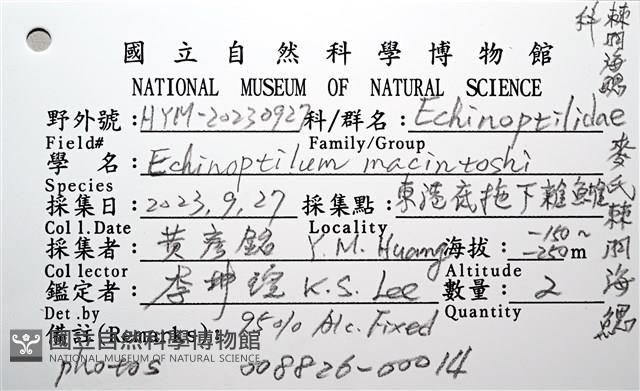 國立自然科學博物館
NATIONAL MUSEUM OF NATURAL SCIENCE
野外號：HYM-20230927 科/群名：Echinoptilidae
Field# Family/Group
學 名：Echinoptilum macintoshi
Species
採集日：2023,9,27 採集點：東港底拖下雜
Coll.Date Locality
採集者：黃彥銘 Y.M. Huang 海拔：-150~-250m
Collector Altitude
鑑定者：李坤瑄 K.S. Lee 數量：2
Det.by Quantity
備註(Remarks)：95% Alc. Fixed
photos 008826-00014
棘羽海鰓科
麥氏棘羽海鰓
國立自然科學博物館
NATIONAL MUSEUM OF NATURAL SCIENCE